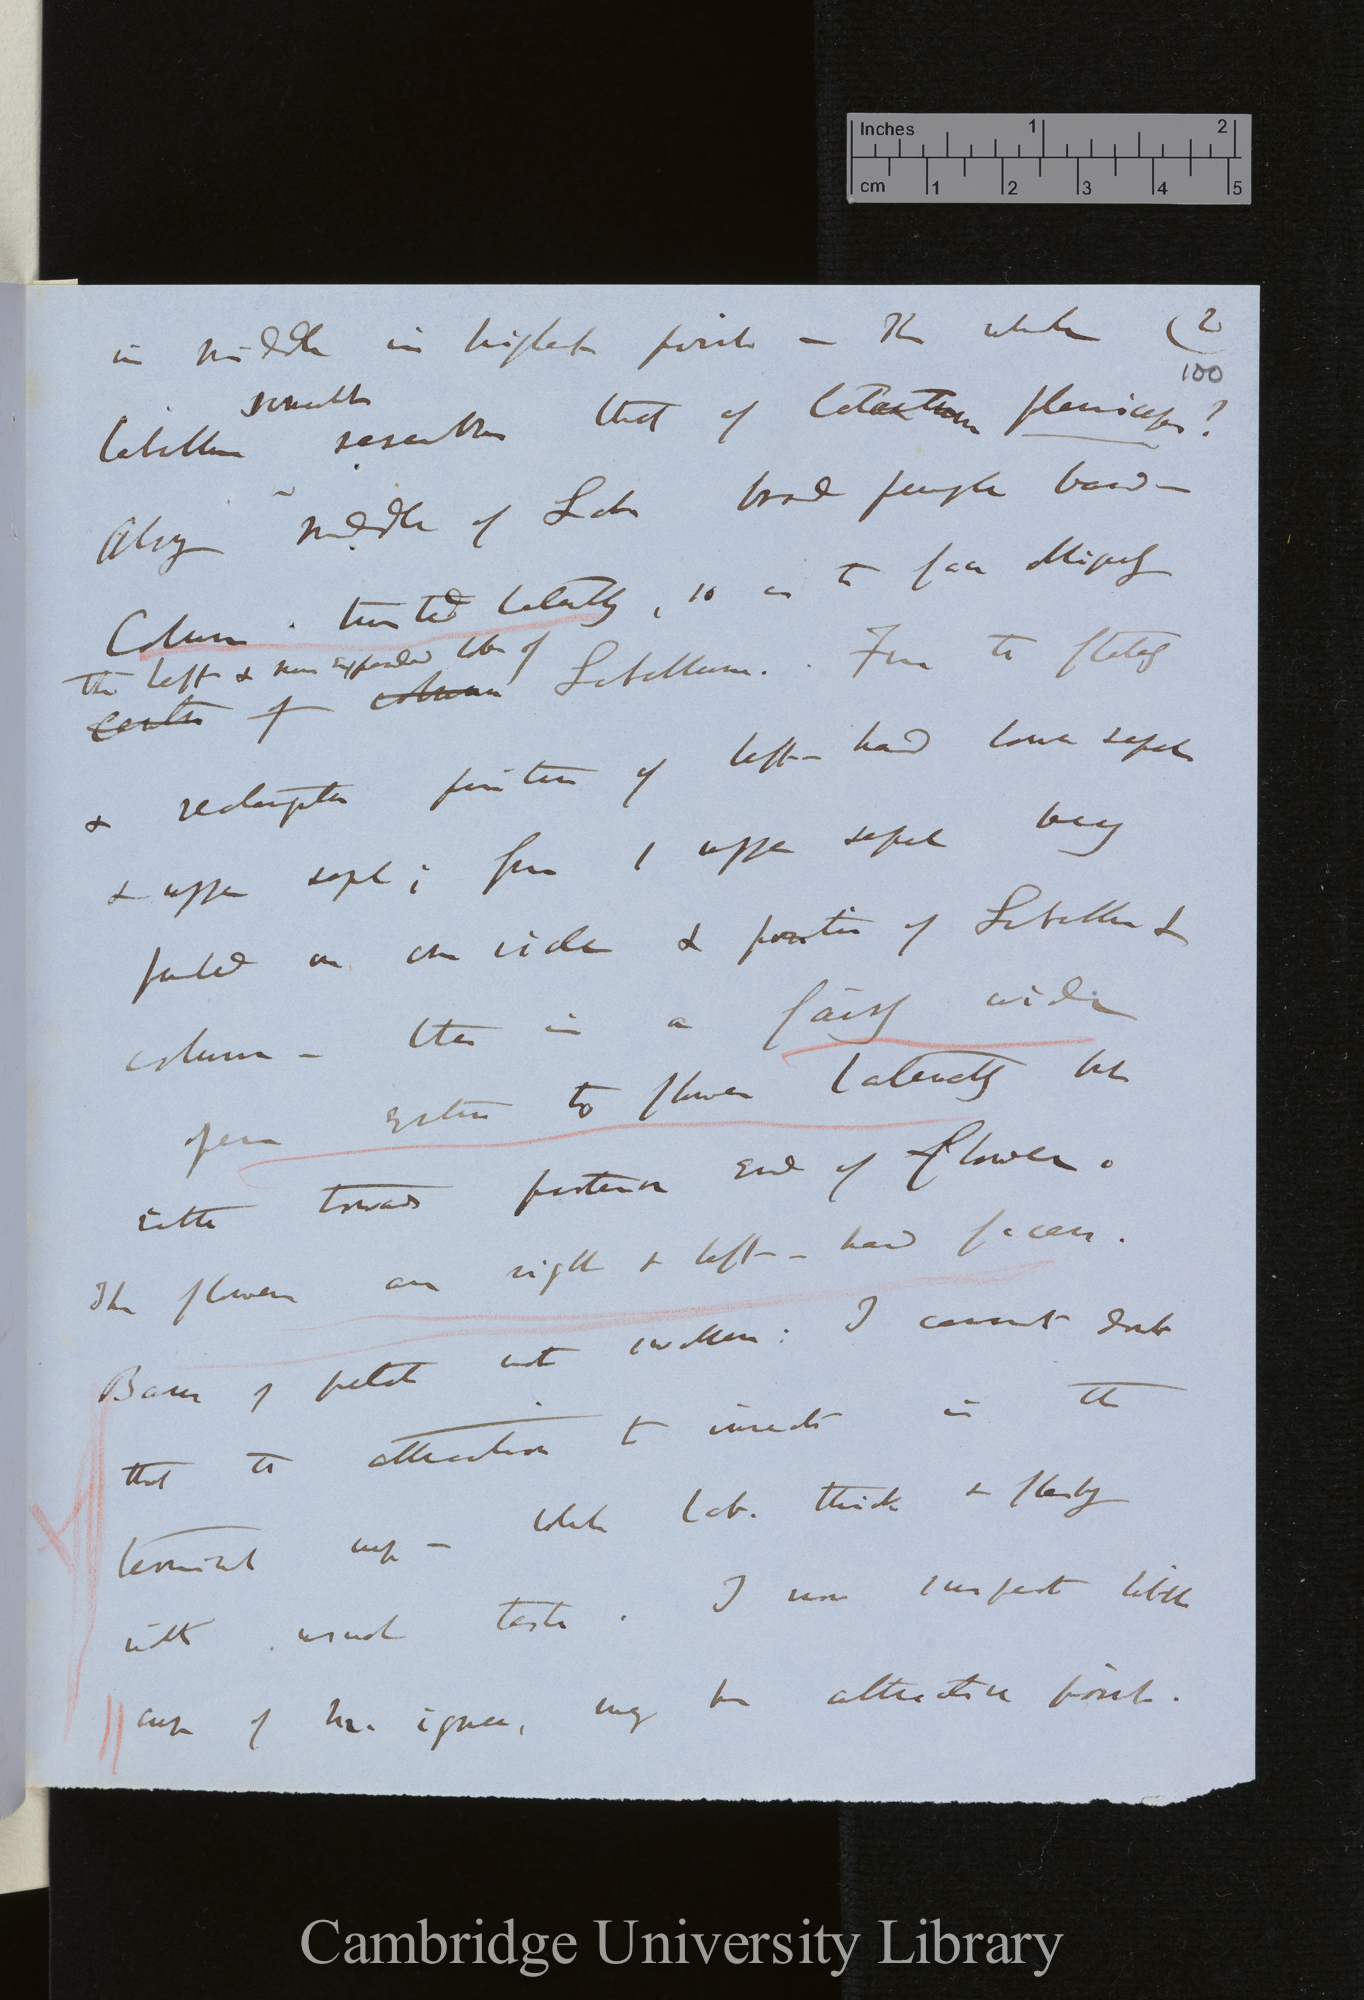 Inches 1 2
cm 1 2 3 4 5
in middle in highest point — The whole (2
100
labellum somewhat resembles that of Catasetum planiceps?
Along middle of Lab. broad purple band —
Column twisted laterally, so as to face obliquely
the left & more expanded lobe of
centre of column Labellum. From the
& rectangular position of left-hand lower sepal
& upper sepal; from 1 upper sepal being
pushed on one side & position of Labellum &
column — there is a fairly wide
open entrance to flower laterally but
rather towards posterior end of flower.
The flowers are right & left-hand faces.
Base of petals not swollen: I cannot doubt
that the attraction to insects is the
terminal cup — whole Lab. thick & fleshy
with usual taste. I now suspect little
cup of M. ignea, may be attractive point.
Cambridge University Library